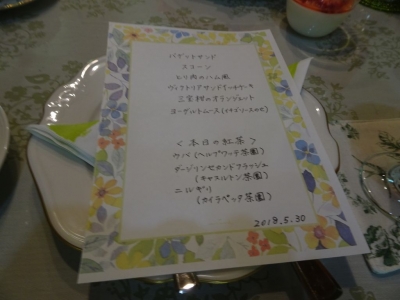 バゲットサンド
スコーン
とり肉のハム風
ヴィクトリアサンドイッチケーキ
三宝柑のオランジェット
ヨーグルトムース
＜本日の紅茶＞
ウバ（ヘルブウッテ茶園）
ダージリンセカンドフラッシュ
（キャスルトン茶園）
ニルギリ
（カイラベッタ茶園）
2018.5.30